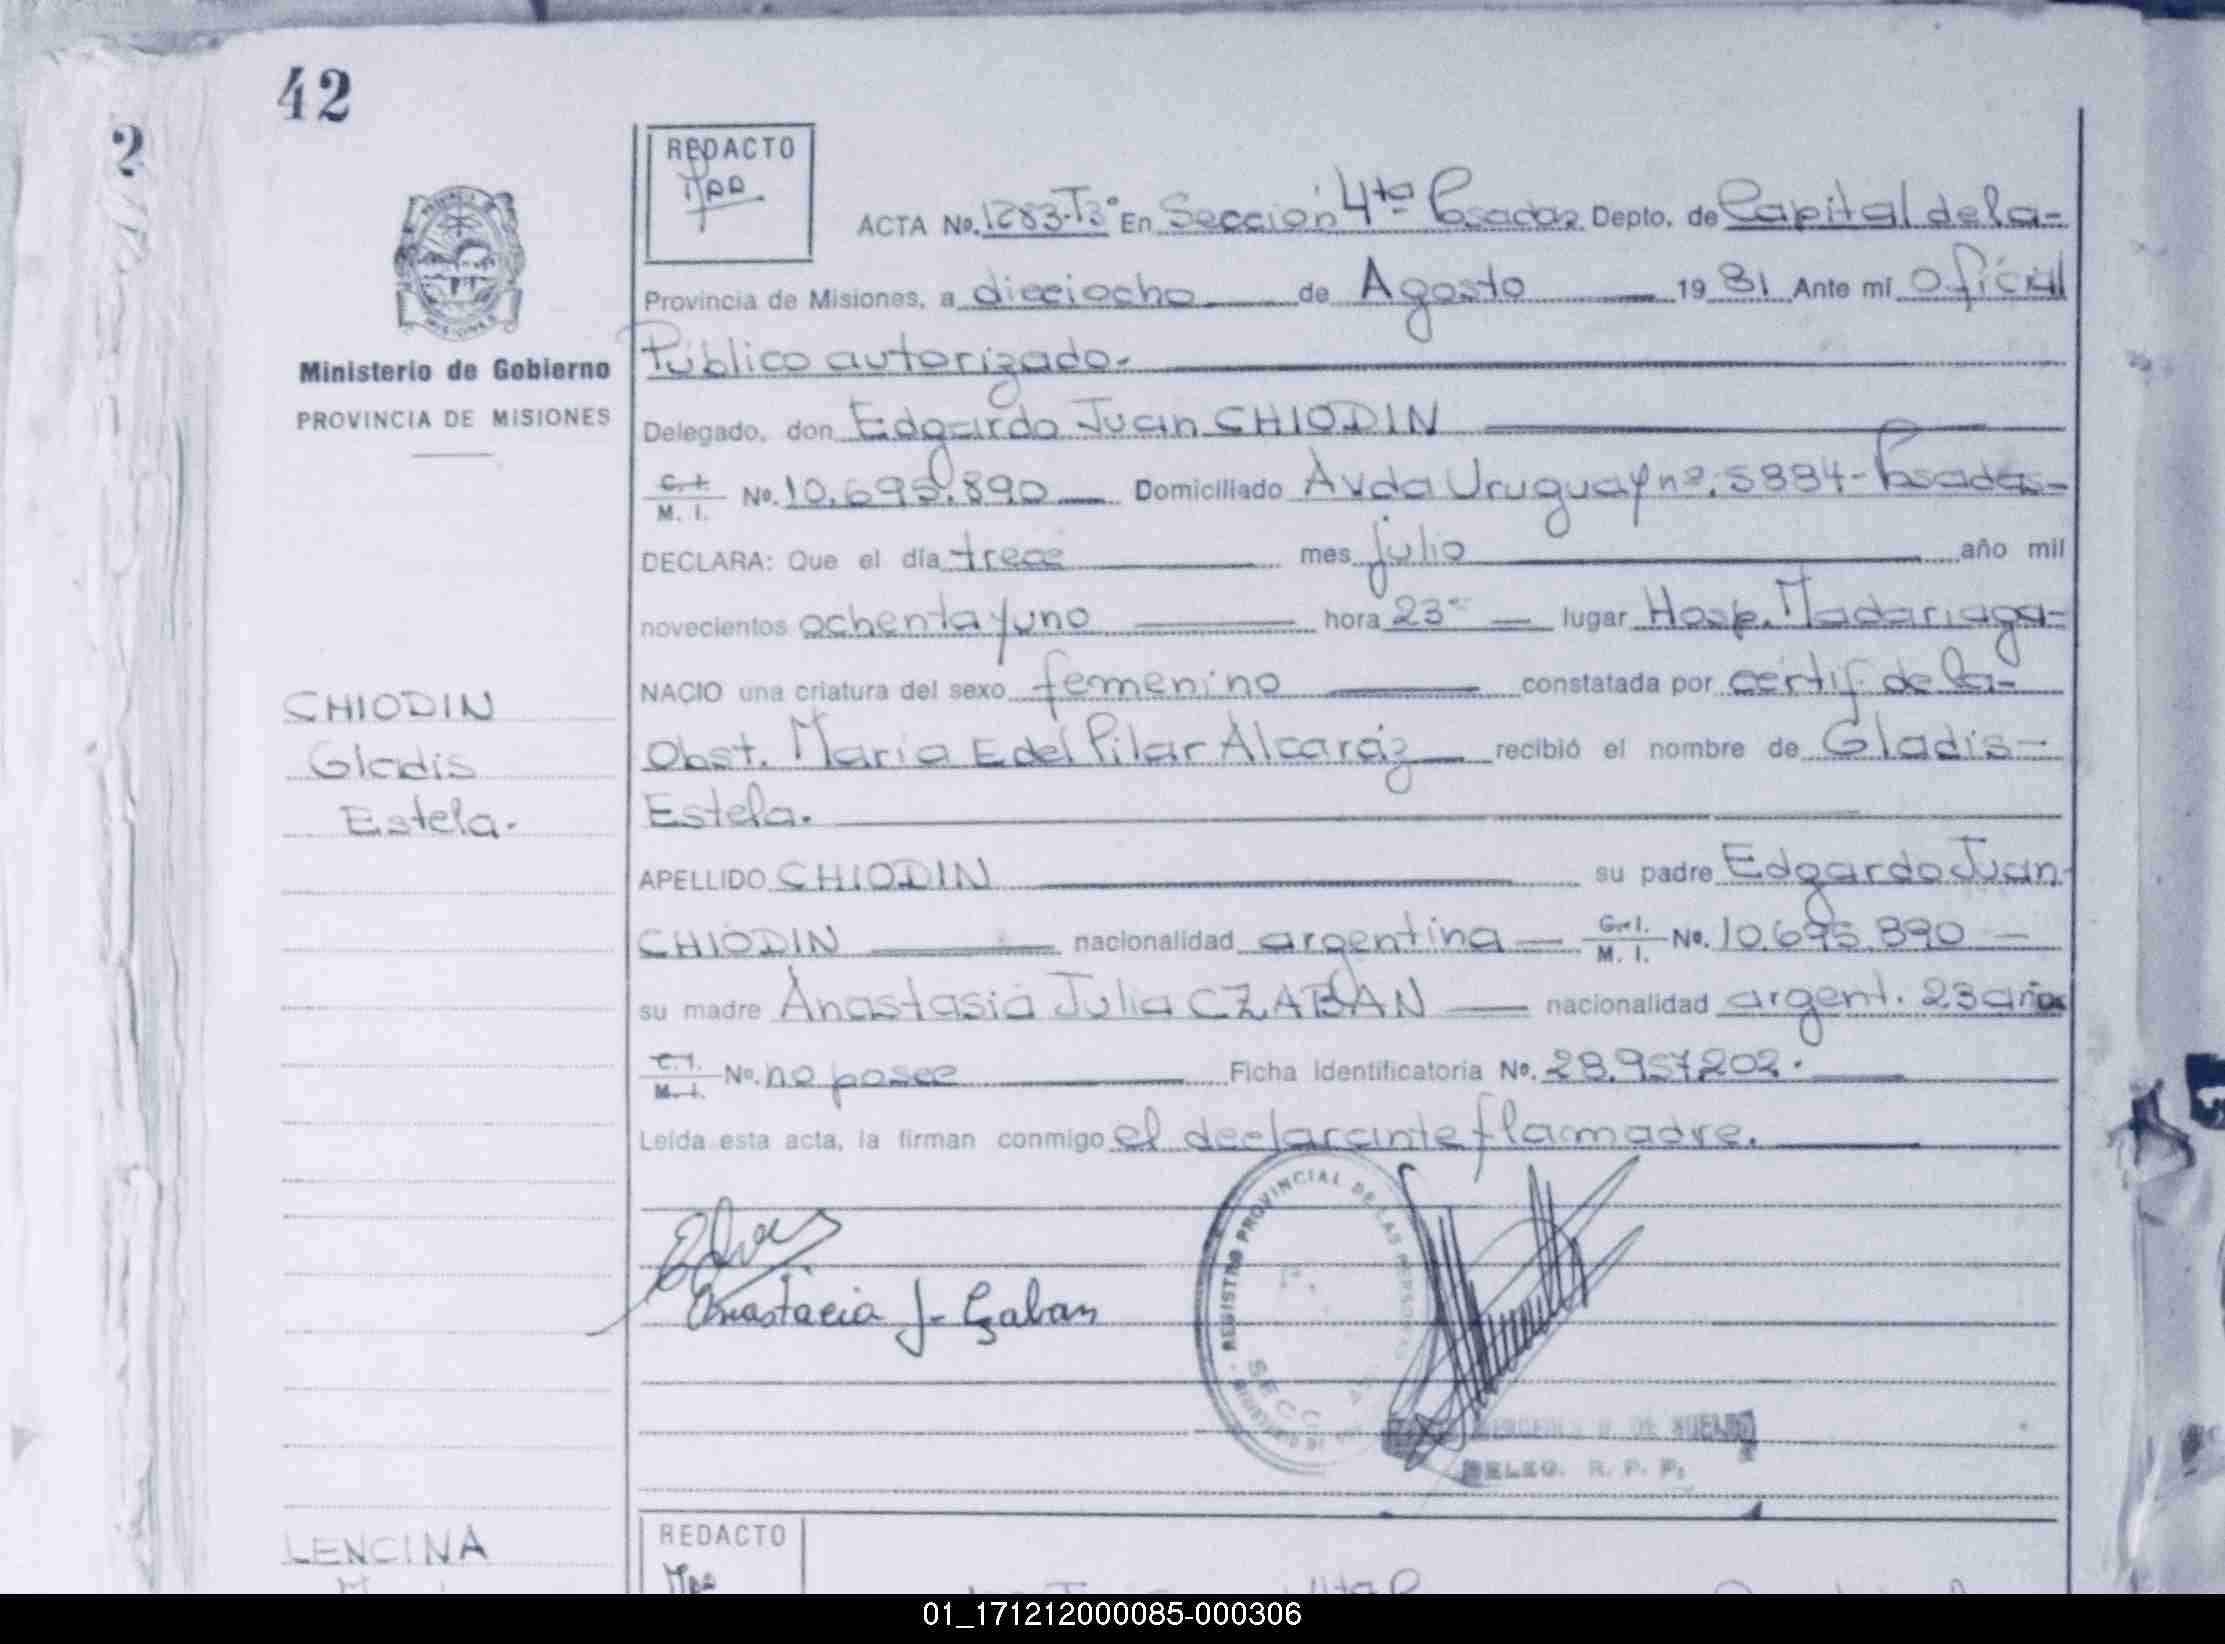 42
2
REDACTO
ACTA No. 1283-T3° En Sección 4ta Posadas Depto. de Capital de la-
Provincia de Misiones, a dieciocho de Agosto 1981 Ante mí Oficial
Público autorizado.-
Ministerio de Gobierno
PROVINCIA DE MISIONES
Delegado, don Edgardo Juan CHIODIN
C. I. M. I. No. 10.695.890 Domiciliado Avda Uruguay nº. 5884- Posadas-
DECLARA: Que el día trece mes julio año mil
novecientos ochenta y uno hora 23 lugar Hosp. Madariaga-
NACIO una criatura del sexo femenino constatada por certif. de la-
Obst. María E del Pilar Alcaráz recibió el nombre de Gladis-
Estela.
CHIODIN
Gladis
Estela.
APELLIDO CHIODIN su padre Edgardo Juan
CHIODIN nacionalidad argentina C. I. M. I. No. 10.695.890
su madre Anastasia Julia CZABAN nacionalidad argent. 23 años
C. I. M. I. No. no posee Ficha Identificatoria No. 28.957.202.
Leída esta acta, la firman conmigo el declarante y la madre.
Anastacia J- Czaban
REGISTRO PROVINCIAL DE LAS PERSONAS
DELEG. R. P. P.
LENCINA
REDACTO
01_171212000085-000306